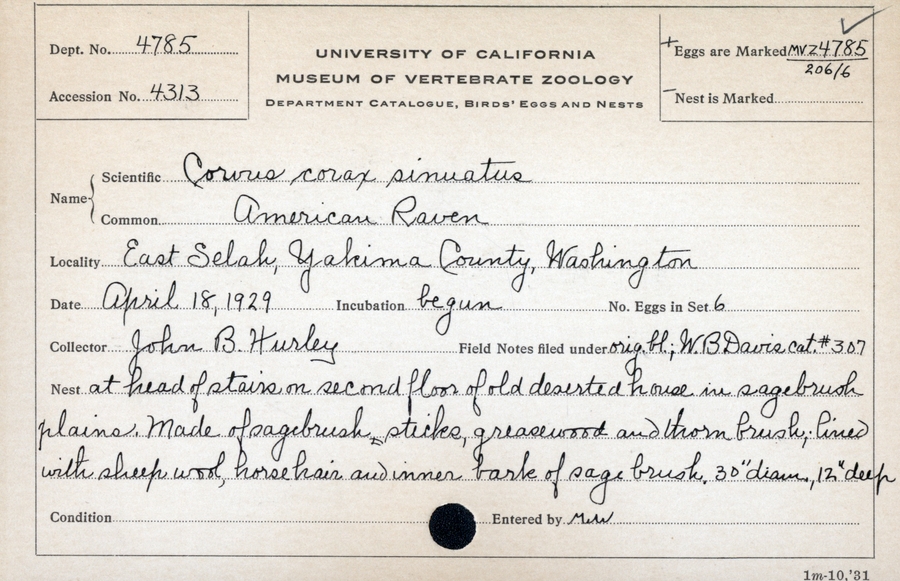 Dept. No. 4785
Accession No. 4313
UNIVERSITY OF CALIFORNIA
MUSEUM OF VERTEBRATE ZOOLOGY
DEPARTMENT CATALOGUE, BIRDS' EGGS AND NESTS
+ Eggs are Marked MVZ 4785
206/6
- Nest is Marked
Name { Scientific Corvus corax sinuatus
Common American Raven
Locality East Selah, Yakima County, Washington
Date April 18, 1929 Incubation begun No. Eggs in Set 6
Collector John B. Hurley Field Notes filed under orig. bl.; W.B. Davis cat. #307
Nest at head of stairs on second floor of old deserted house in sagebrush
plains. Made of sagebrush sticks, greasewood and thorn brush; lined
with sheep wool, horsehair and inner bark of sage brush. 30" diam., 12" deep
Condition Entered by
1m-10,'31